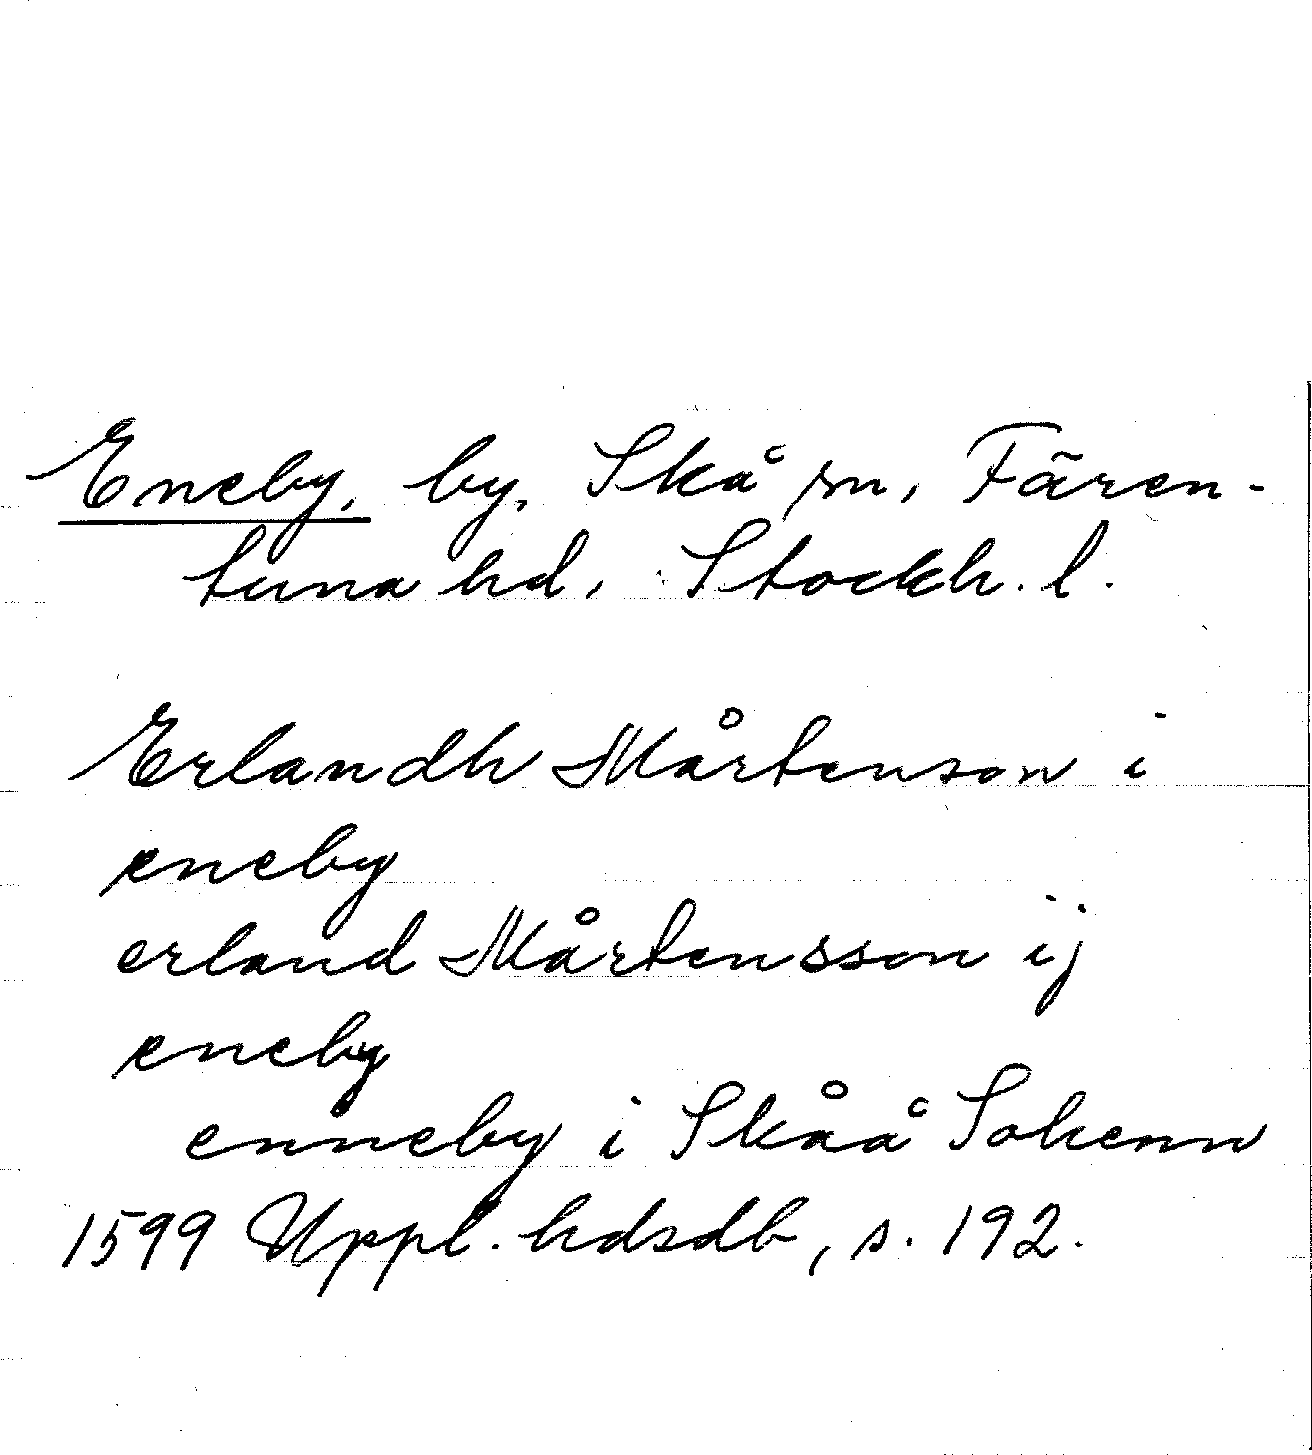 Eneby, by, Skå sn, Fären-
tuna hd, Stockh. l.
Erlandh Mårtenson i
eneby
erland Mårtensson ij
eneby
enneby i Skåå Sokenn
1599 Uppl. hdsdb, s. 192.